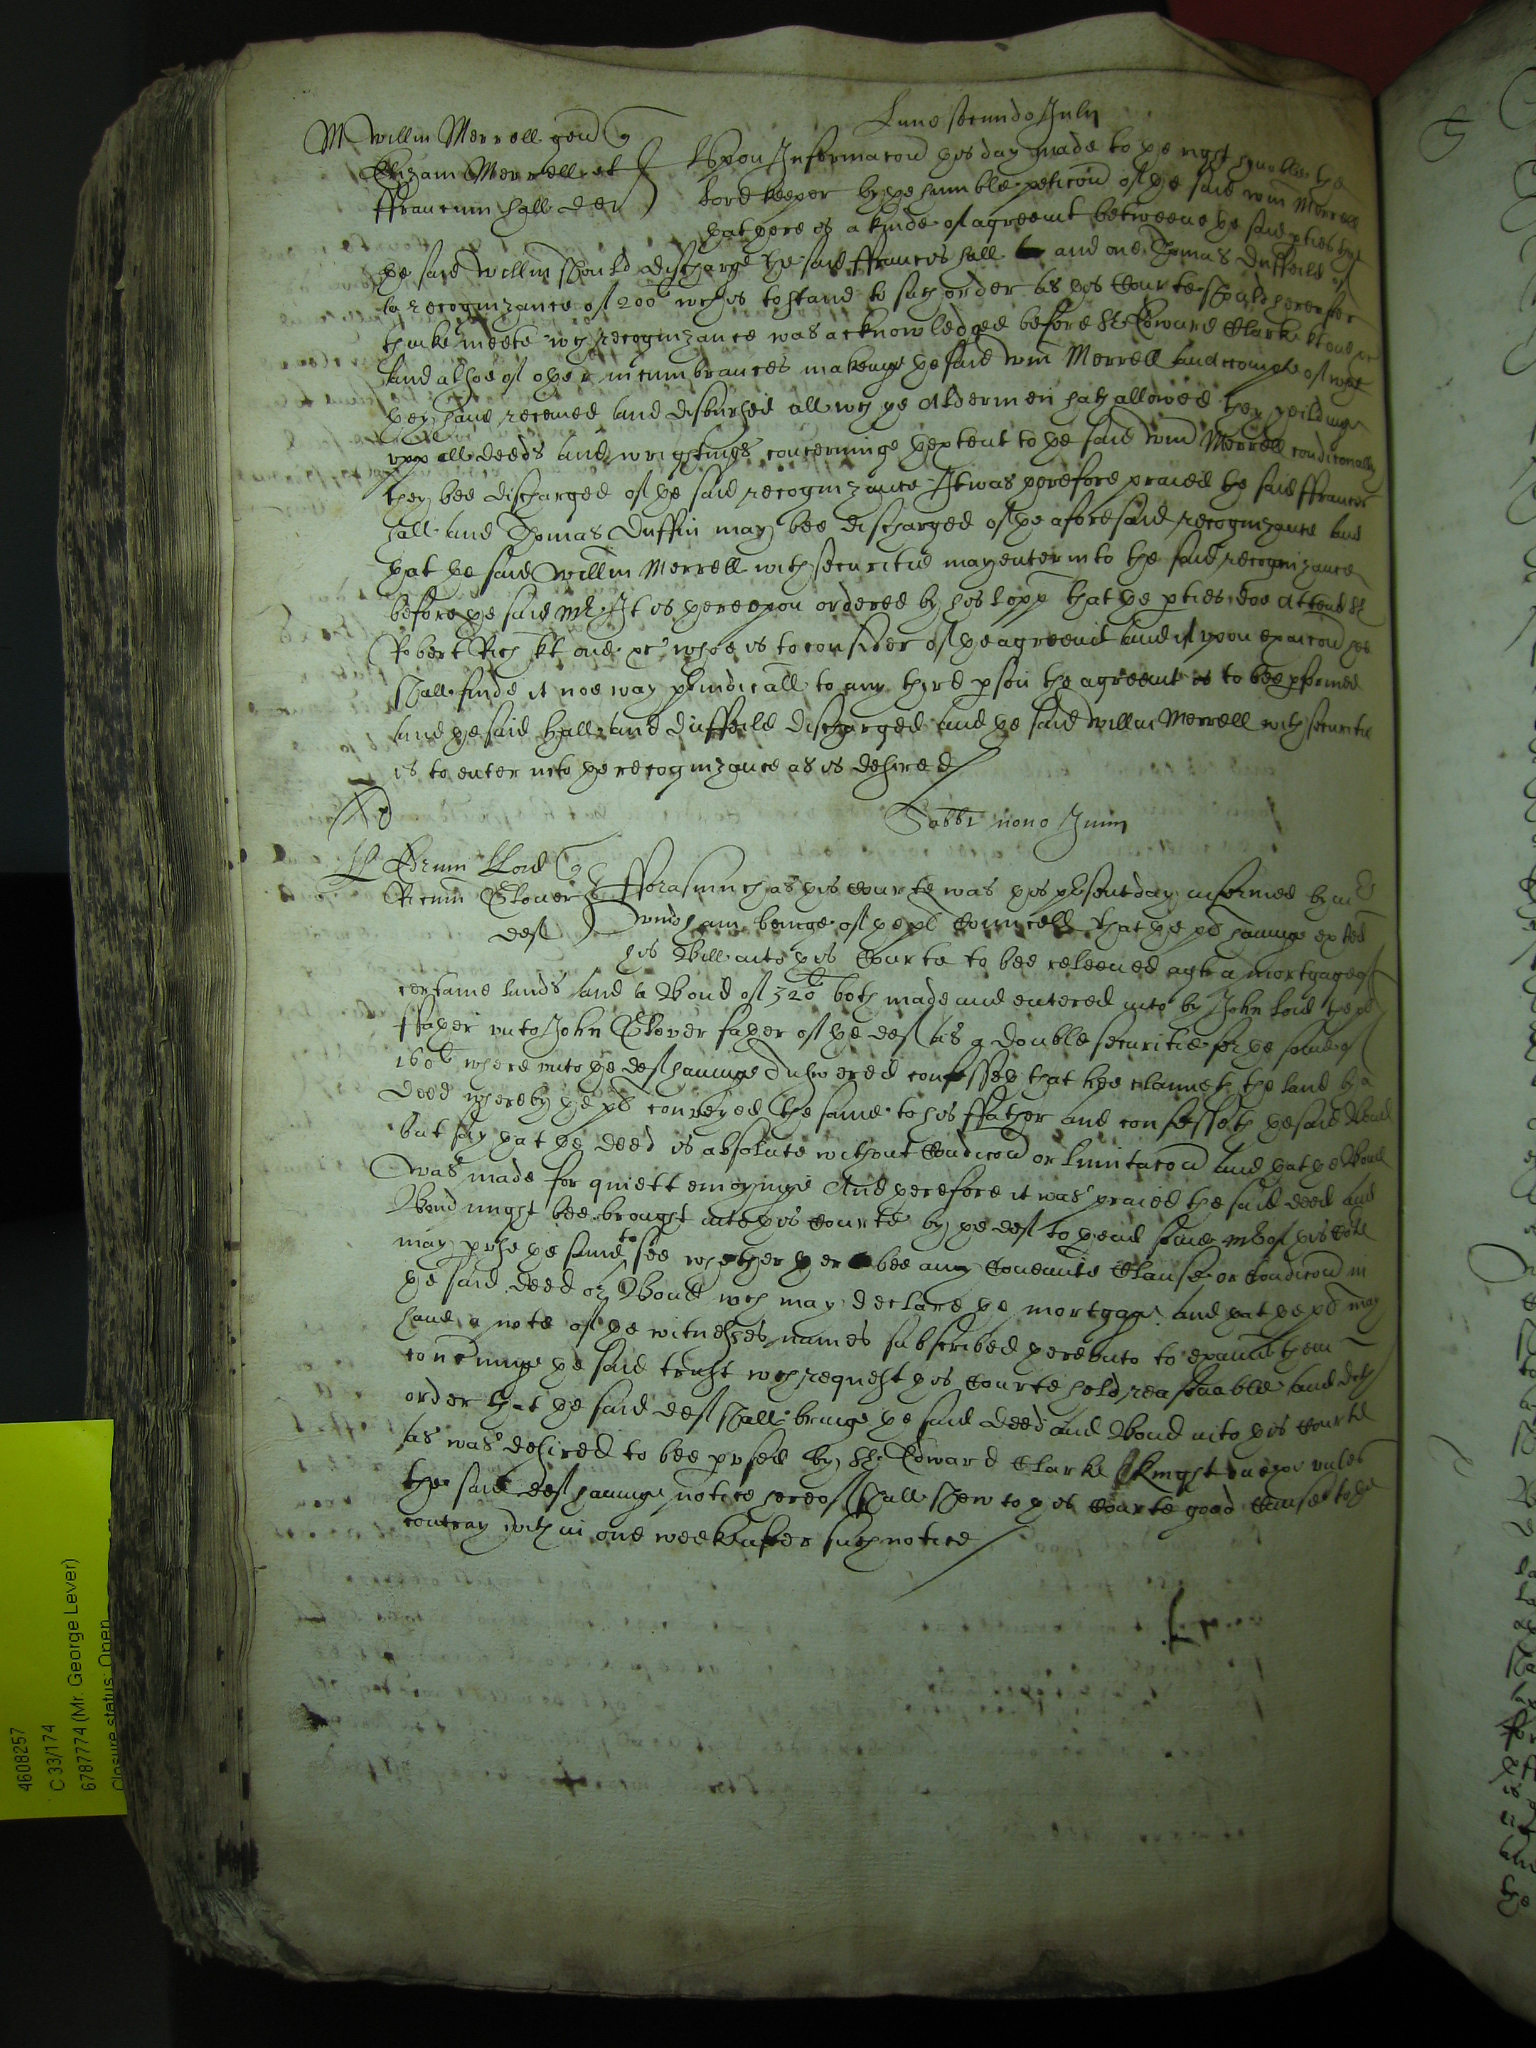 Lune secundo Julij
M Willm Merrell gen q
Elizam Merrell et
ffranciscum Hall def
Upon Informacon this day made to the right honorable the
Lord keeper by the humble peticon of the said Wm Merrell
that there is a kinde of agreemt betweene the said pties that
the said Willm should discharge the said ffrancis Hall and one Thomas Duffeild of
a recognizance of 200li wch is to stand to such order as this Courte should hereafter
thinke meete wch recognizance was acknowledged before Sr Edward Clark kt one &c
and alsoe of other incumbrances makeinge the said Wm Merrell and accompte of what
they have received and disbursed all wch the Aldermen hath allowed they yeildinge
upp all deeds and wrightings concerninge thextent to the said Wm Merrell condiconally
they bee discharged of the said recognizance It was therefore praied the said ffrancis
Hall and Thomas Duffin may bee discharged of the aforesaid recognizance and
that the said Willm Merrell with securitie may enter into the said recognizance
before the said Mr It is thereupon ordered by his Lopp that the pties doe attend Sr
Robert Rich kt one &c whoe is to consider of the agreemt and if upon exaicon hee
shall finde it noe way p'iudiciall to any third pson the agreemt is to bee pformed
and the said Hall and Duffeild discharged and the said Willm Merrell with securitie
is to enter into the recognizance as is desired
Sabbti nono Junij
Lord q
Glover
def
fforasmuch as this Courte was this pˀsent day informed by mr
Windham beinge of the pl Councell that the pl havinge exhited
his Bill into this Courte to bee releeved agt a mortgage of
certaine lands and a Bond of 320li both made and entered into by John Lord the pl
ffather unto John Glover father of the def as a double securitie for the some of
160li whereunto the def havinge Answered confesseth that hee claimeth the land by a
deed whereby the pl conveyed the same to his ffather and confesseth the said Bond
but say that the deed is absolute without Condicon or limitacon and that the Bond
was made for quiett enioyinge And therefore it was praied the said deed and
Bond might bee brought into this Courte by the def to thend some mr of this Cote
may pvse the same to see whether ther bee any Covenante Clause or Condicon in
the said deed or Bond wch may declare the mortgage and that the pl may
have a note of the witnesses names subscribed thereunto to examine them
concninge the said trust wch request this Courte held reasonable and doth
order that the said def shall bringe the said deed and Bond into this Courte
as was desired to bee pvsed by Sr Edward Clarke knight one &c unles
the said def havinge notice hereof shall shew to this Courte good cause to the
contrary wthin one weeke after such notice
4608257
C 33/174
6787774 (Mr. George Lever)
Closure status: Open